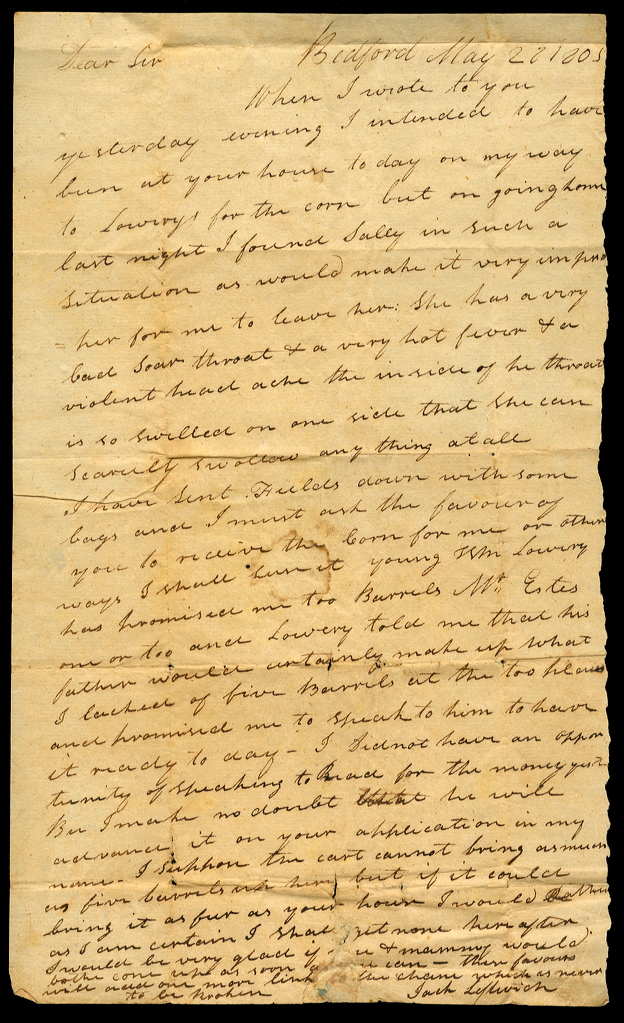 Bedford May 22 1805
Dear Sir
When I wrote to you
yesterday evening I intended to have
been at your house to day on my way
to Lowrys for the corn but on going home
last night I found Sally in such a
Situation as would make it very impro
=her for me to leave her: She has a very
bad Soar throat & a very hot fever & a
violent head ache the inside of he throat
is so Swilled on one side that She can
Scarcelly Swollow any thing at all
I have Sent Fields down with some
bags and I must ask the favour of
you to receive the Corn for me or other
ways I shall Lun it young Wm Lowery
has promised me too Barrels Mr. Estes
one or too and Lowery told me that his
father would certainly make up what
I lacked of five Barrils at the too places
and promised me to Speak to him to have
it ready to day - I Did not have an oppor
tunity of Speaking to Read for the money yest
Bu I make no doubt he will
advance it on your application in my
name - I Suppose the cart cannot bring as much
as five barrels up here but if it could
bring it as far as your house I would Rather
as I am certain I Shall get none hereafter
I would be very glad if & mammy would
bothe come up as soon can - these favours
will add one more link the chane which is never
to be broken Jack Leftwich